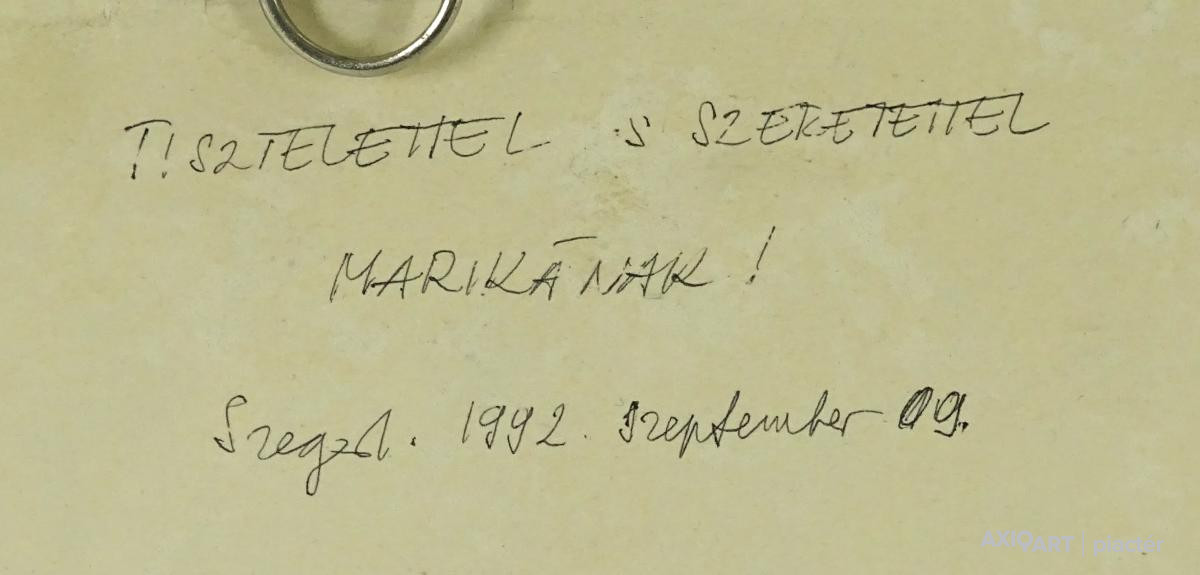 TISZTELETTEL 's SZERETETTEL
MARIKÁNAK!
Szegzd. 1992. Szeptember 09.
AXIOART | piactér